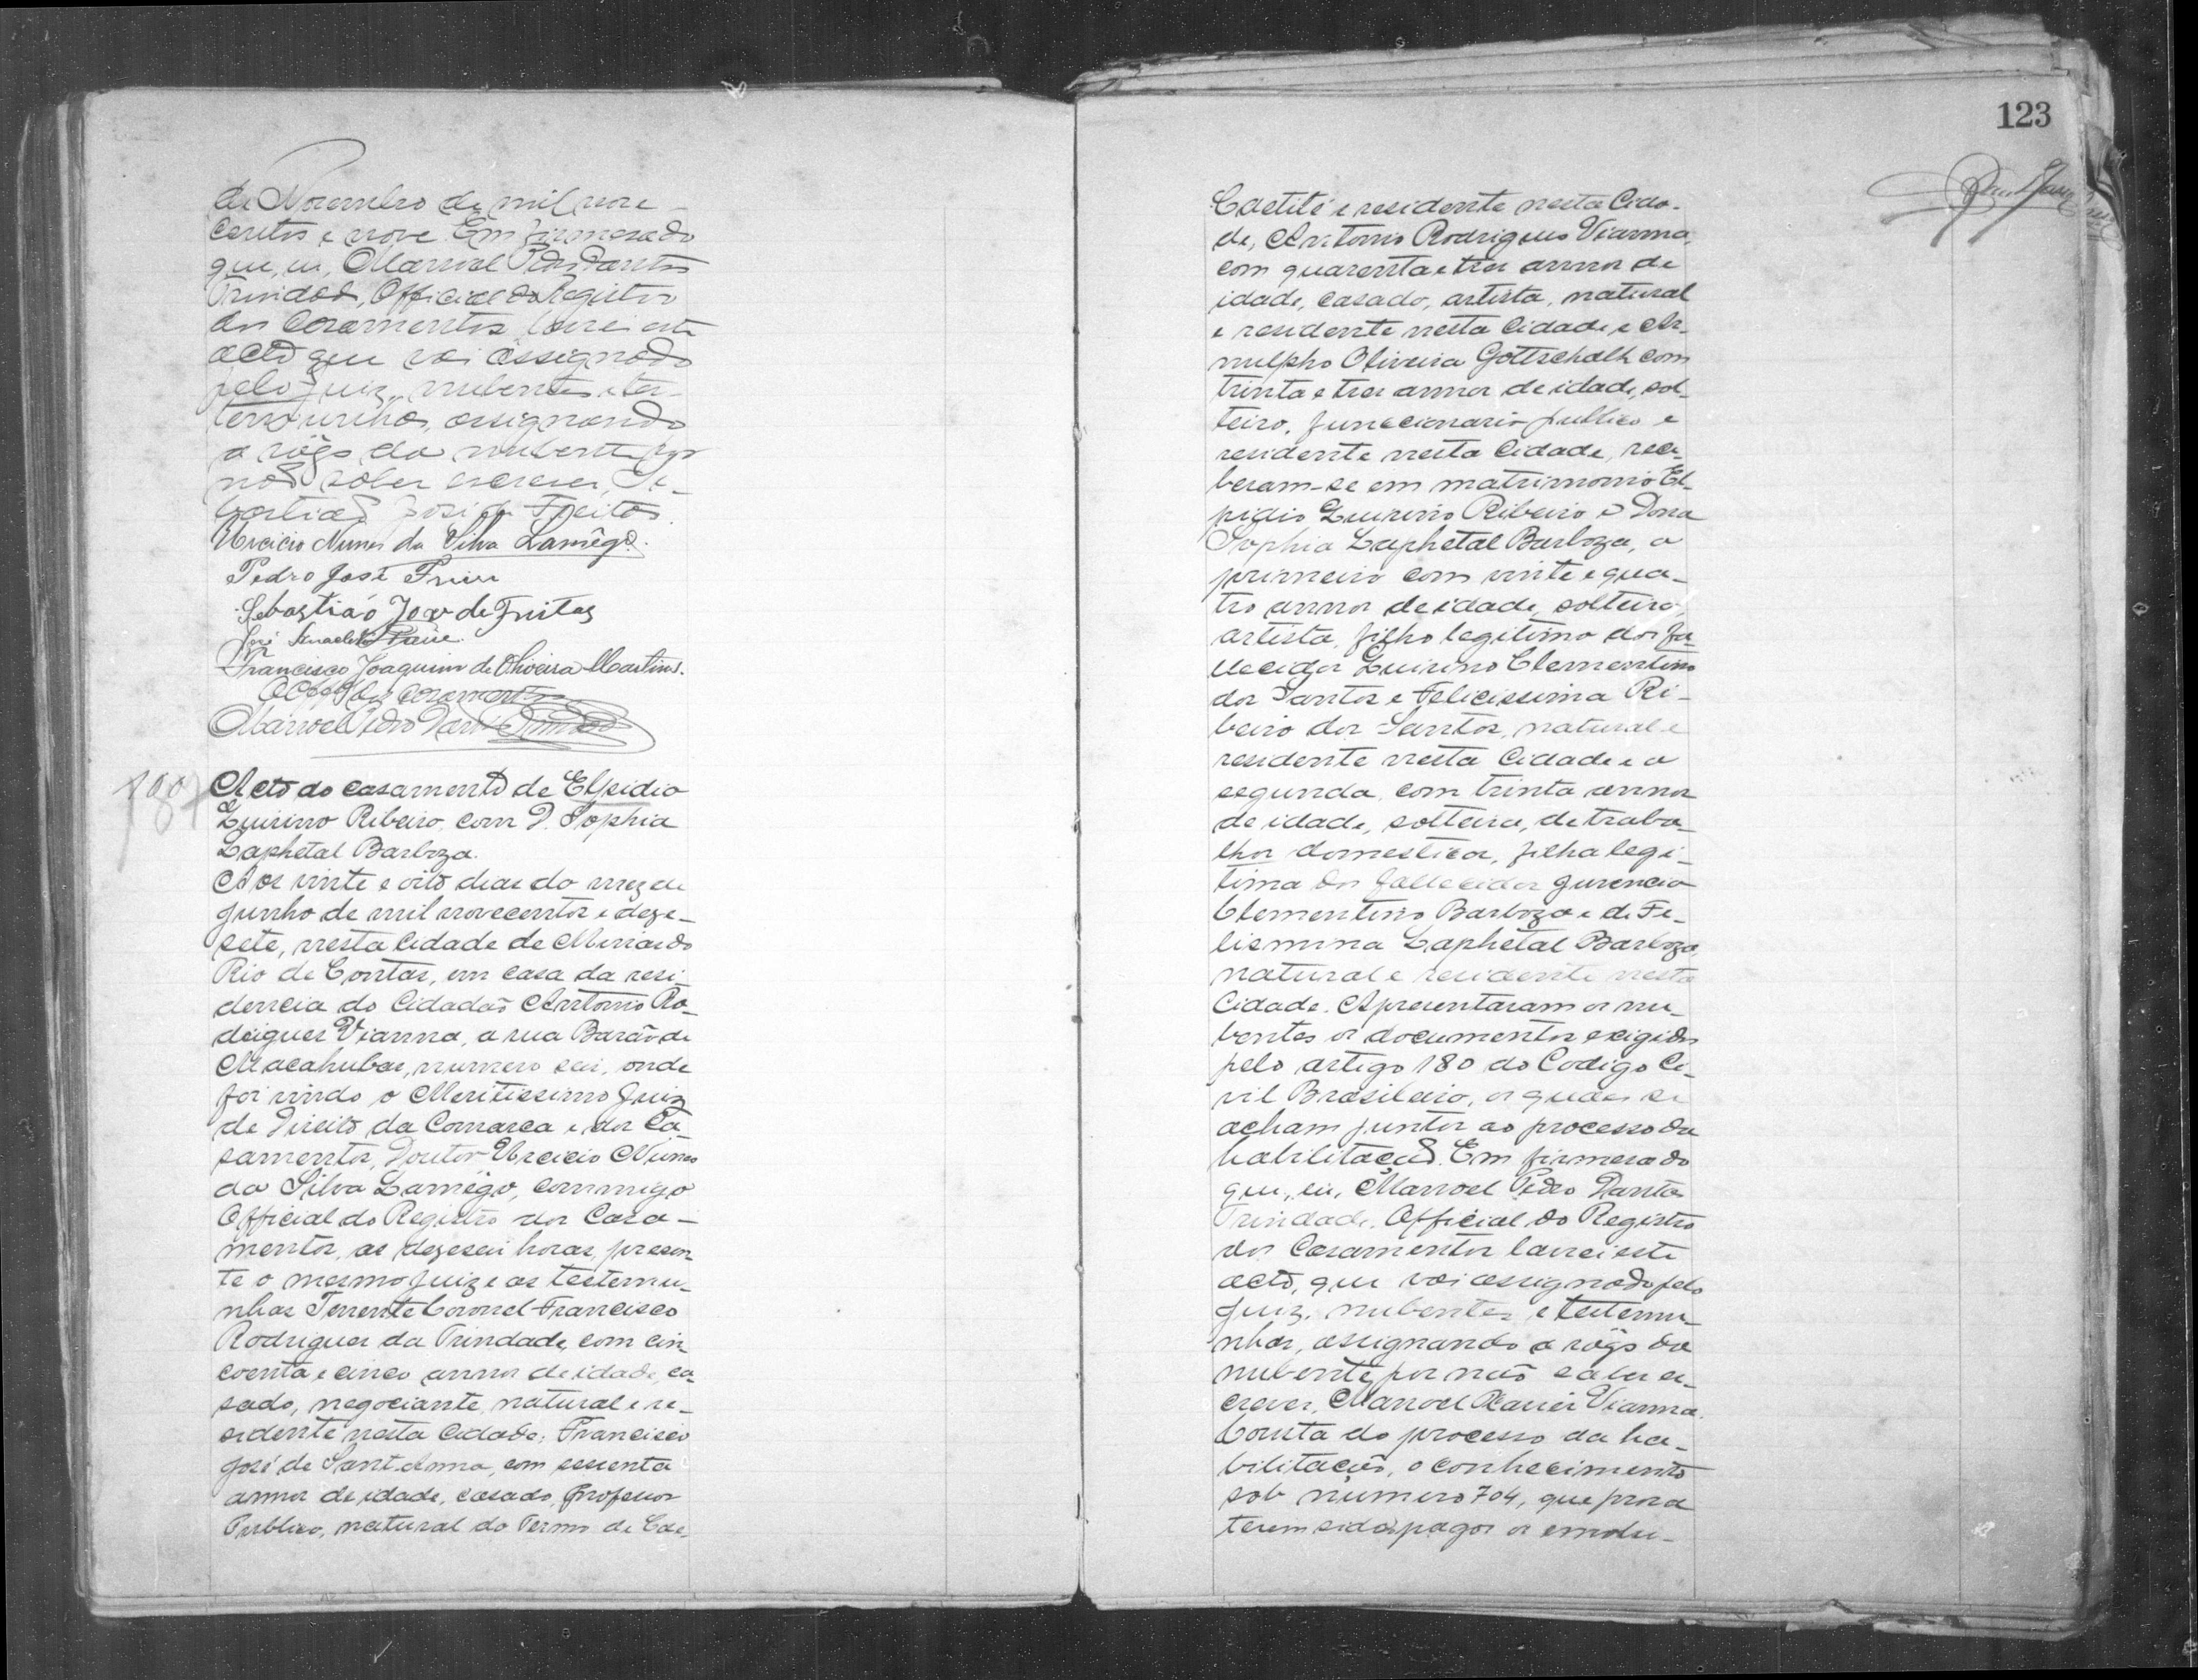 de Novembro de mil nove-
centos e nove. Em firmesa do
que, eu, Manoel Pedro Dantas
Trindade, Official do Registro
dos Casamentos lavrei este
acto que vai assignado
pelo Juiz, nubentes e tes-
temunhas, assignando
a rôgo da nubente por
não saber escrever, Se-
bastião José de Freitas.
Urcicio Nunes da Silva Lamêgo.
Pedro José
Sebastião José de Freitas
José
Francisco Joaquim de Oliveira Martins.
O Offal dos Casamentos
Manoel Pedro Dantas Trindade
187
Acto do casamento de Elpidio
Quirino Ribeiro com D. Sophia
Laphetal Barboza.
Aos vinte e oito dias do mez de
Junho de mil novecentos e deze-
sete, nesta Cidade de Minas do
Rio de Contas, em casa da resi-
dencia do Cidadão Antonio Ro-
drigues Vianna, a rua Barão de
Macahubas, numero seis, onde
foi vindo o Meritissimo Juiz
de Direito da Comarca e dos Ca-
samentos, Doutor Urcicio Nunes
da Silva Lamêgo, commigo
Official do Registro dos Casa-
mentos, as dezeseis horas, presen-
te o mesmo Juiz e as testemu-
nhas Tenente Coronel Francisco
Rodrigues da Trindade, com cin-
coenta e cinco annos de idade, ca-
sado, negociante, natural e re-
sidente nesta Cidade; Francisco
José de Sant'Anna, com sessenta
annos de idade, casado, Professor
Publico, natural do Termo de Cae-
123
Caetité e residente nesta Cida-
de, Antonio Rodrigues Vianna,
com quarenta e tres annos de
idade, casado, artista, natural
e residente nesta Cidade e Ar-
nulpho Oliveira Gottschalk com
trinta e tres annos de idade, sol-
teiro, funccionario publico e
residente nesta Cidade, rece-
beram-se em matrimonio El-
pidio Quirino Ribeiro e Dona
Sophia Laphetal Barboza, o
primeiro com vinte e qua-
tro annos de idade, solteiro,
artista, filho legitimo dos fa-
llecidos Quirino Clementino
dos Santos e Felicissima Ri-
beiro dos Santos, natural e
residente nesta Cidade e a
segunda, com trinta annos
de idade, solteira, de traba-
lhos domesticos, filha legi-
tima dos fallecidos Juvencio
Clementino Barboza e de Fe-
lismina Laphetal Barboza,
natural e residente nesta
Cidade. Apresentaram os nu-
bentes os documentos exigidos
pelo artigo 180 do Codigo Ci-
vil Brasileiro, os quaes se
acham juntos ao processo da
habilitação. Em firmesa do
que, eu, Manoel Pedro Dantas
Trindade, Official do Registro
dos Casamentos lavrei este
acto, que vai assignado pelo
Juiz, nubentes e testemu-
nhas, assignando a rôgo da
nubente, por não saber es-
crever, Manoel Xavier Vianna.
Consta do processo da ha-
bilitação, o conhecimento
sob numero 704, que prova
terem sido pagos os emolu-